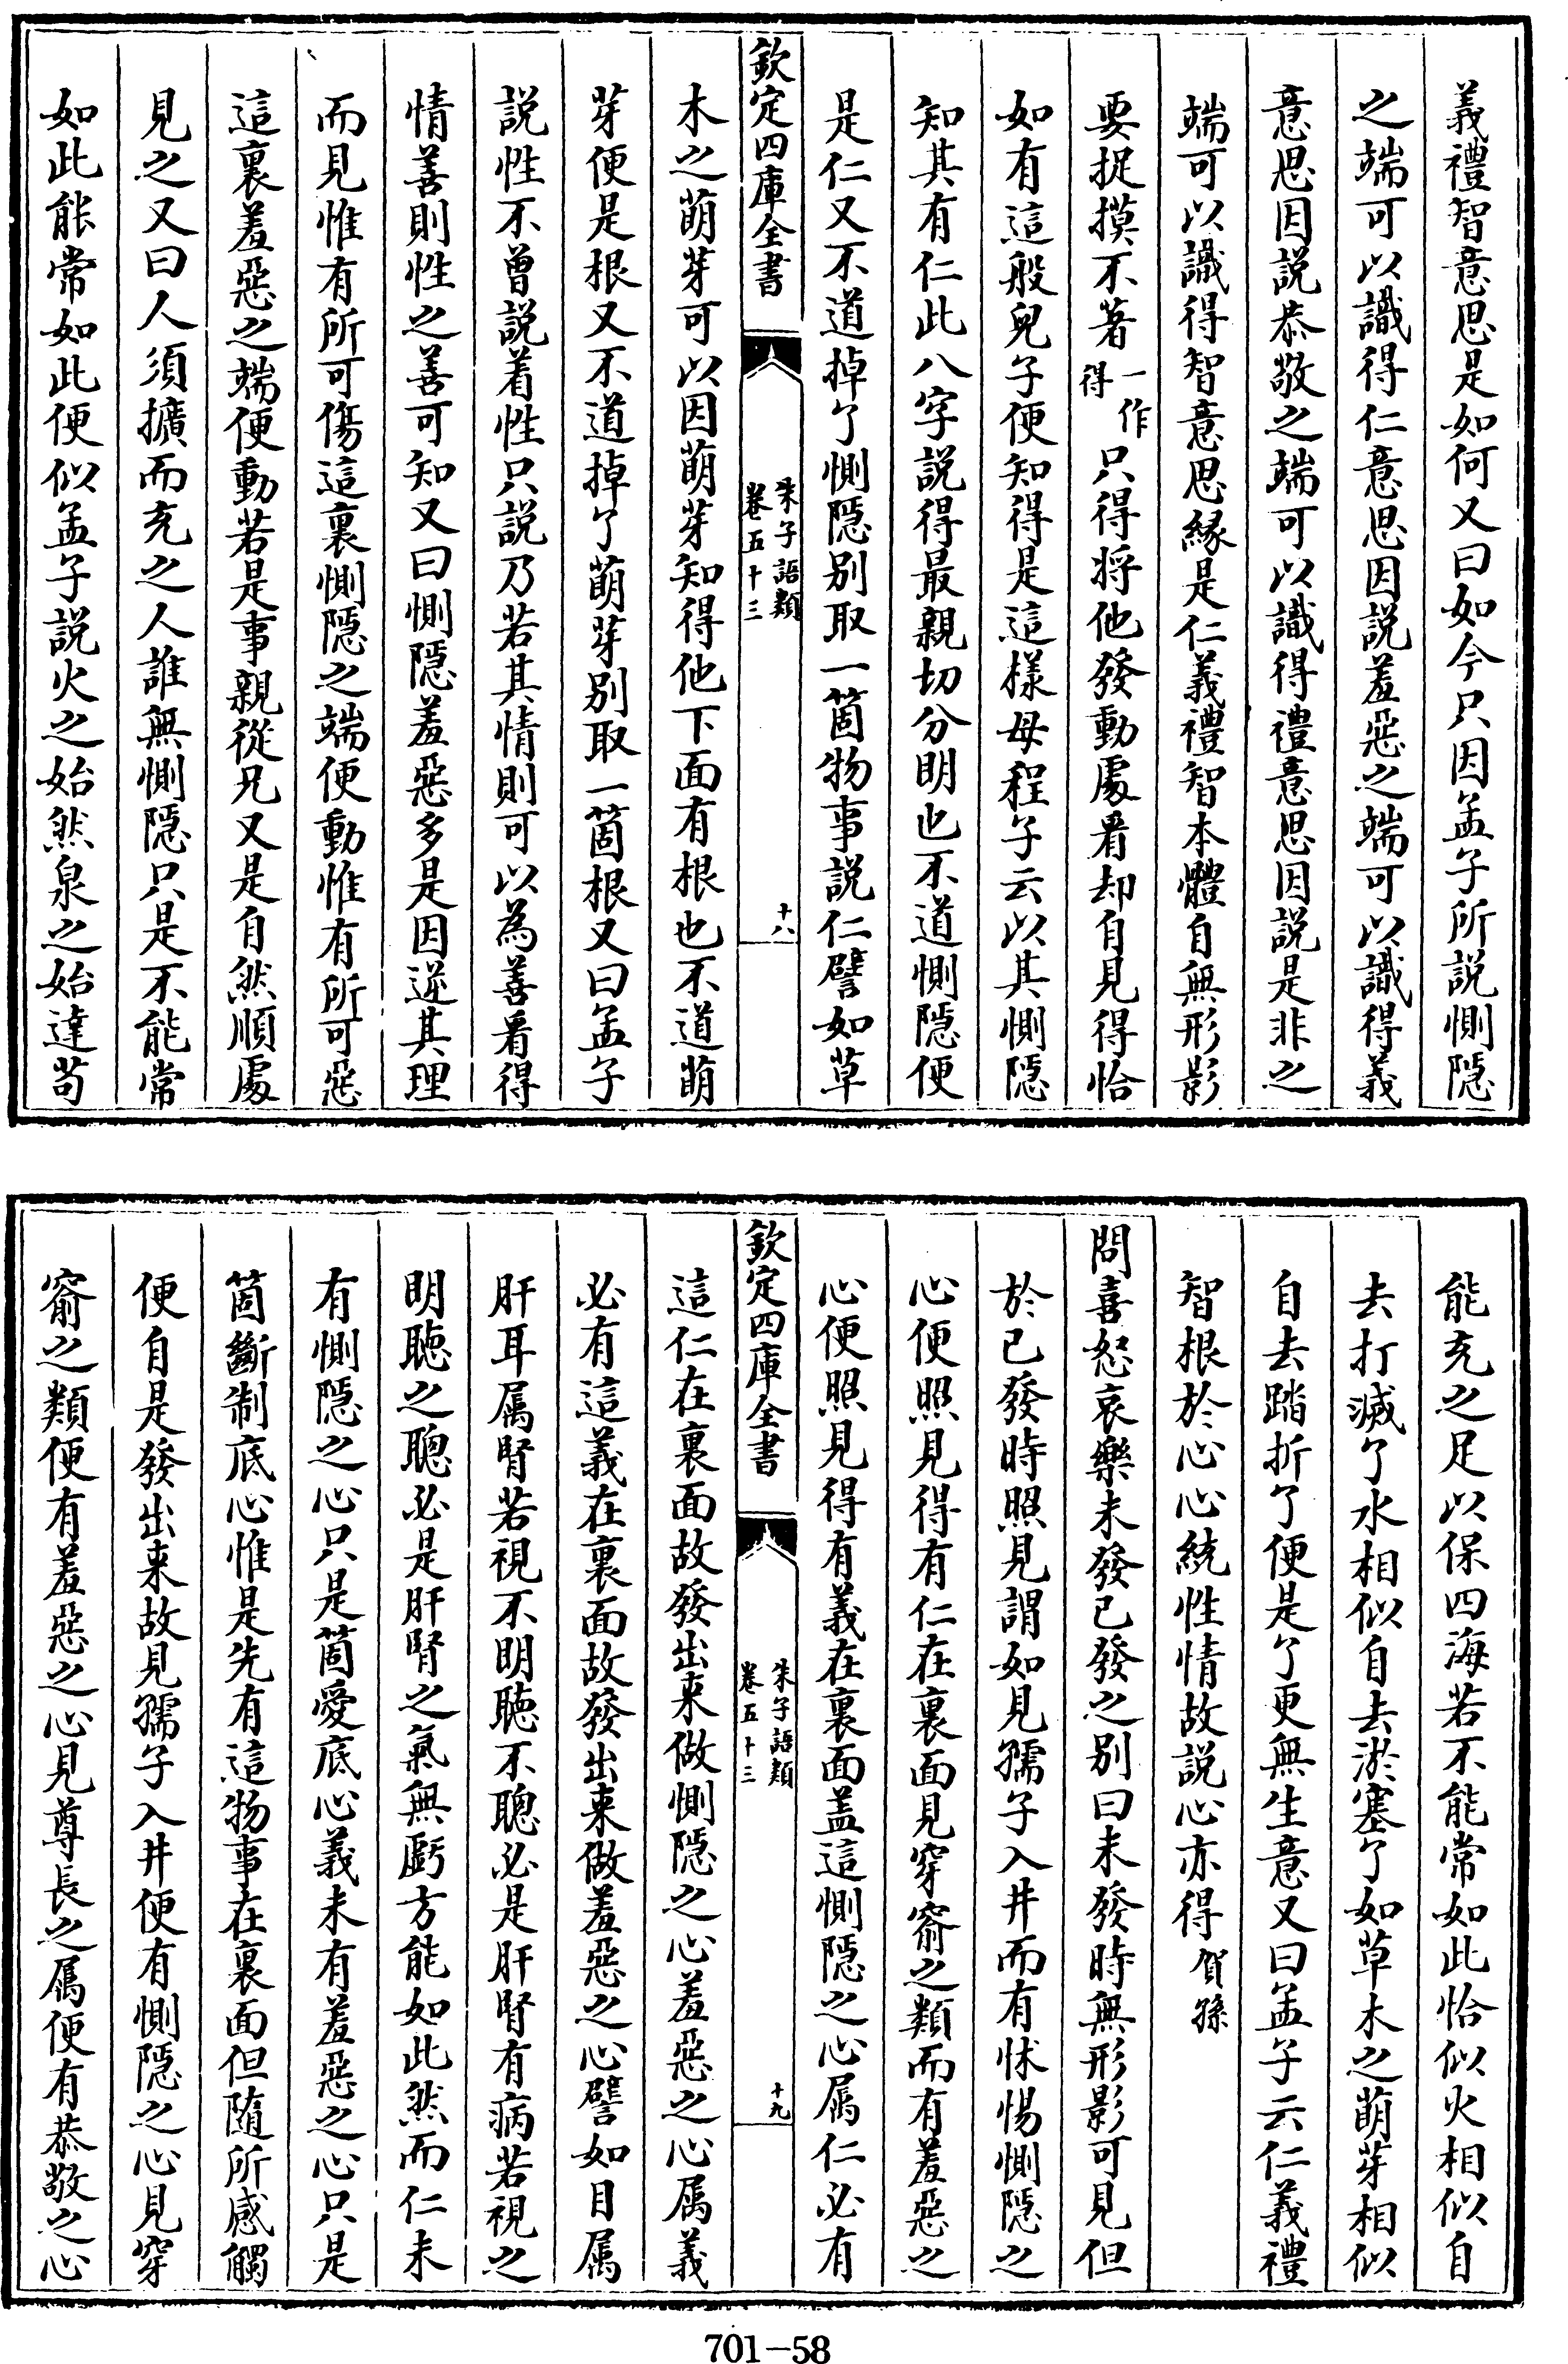 義禮智意思是如何又曰如今只因孟子所説惻隱
之端可以識得仁意思因説羞惡之端可以識得義
意思因説恭敬之端可以識得禮意思因説是非之
端可以識得智意思緣是仁義禮智本體自無形影
要捉摸不著一作得只得將他發動處看却自見得恰
如有這般兒子便知得是這樣母程子云以其惻隱
知其有仁此八字説得最親切分明也不道惻隱便
是仁又不道掉了惻隱别取一箇物事説仁譬如草
欽定四庫全書
朱子語類
卷五十三
十八
木之萌芽可以因萌芽知得他下面有根也不道萌
芽便是根又不道掉了萌芽别取一箇根又曰孟子
説性不曾説着性只説乃若其情則可以為善看得
情善則性之善可知又曰惻隱羞惡多是因逆其理
而見惟有所可傷這裏惻隱之端便動惟有所可惡
這裏羞惡之端便動若是事親從兄又是自然順處
見之又曰人須擴而充之人誰無惻隱只是不能常
如此能常如此便似孟子説火之始然泉之始達苟
能充之足以保四海若不能常如此恰似火相似自
去打滅了水相似自去淤塞了如草木之萌芽相似
自去踏折了便是了更無生意又曰孟子云仁義禮
智根於心心統性情故説心亦得賀孫
問喜怒哀樂未發已發之别曰未發時無形影可見但
於已發時照見謂如見孺子入井而有怵惕惻隱之
心便照見得有仁在裏面見穿窬之類而有羞惡之
心便照見得有義在裏面蓋這惻隱之心属仁必有
欽定四庫全書
朱子語類
卷五十三
十九
這仁在裏面故發出来做惻隱之心羞惡之心属義
必有這義在裏面故發出来做羞惡之心譬如目属
肝耳属腎若視不明聽不聰必是肝腎有病若視之
明聽之聰必是肝腎之氣無虧方能如此然而仁未
有惻隱之心只是箇愛底心義未有羞惡之心只是
箇斷制底心惟是先有這物事在裏面但隨所感觸
便自是發出来故見孺子入井便有惻隱之心見穿
窬之類便有羞惡之心見尊長之属便有恭敬之心
701-58